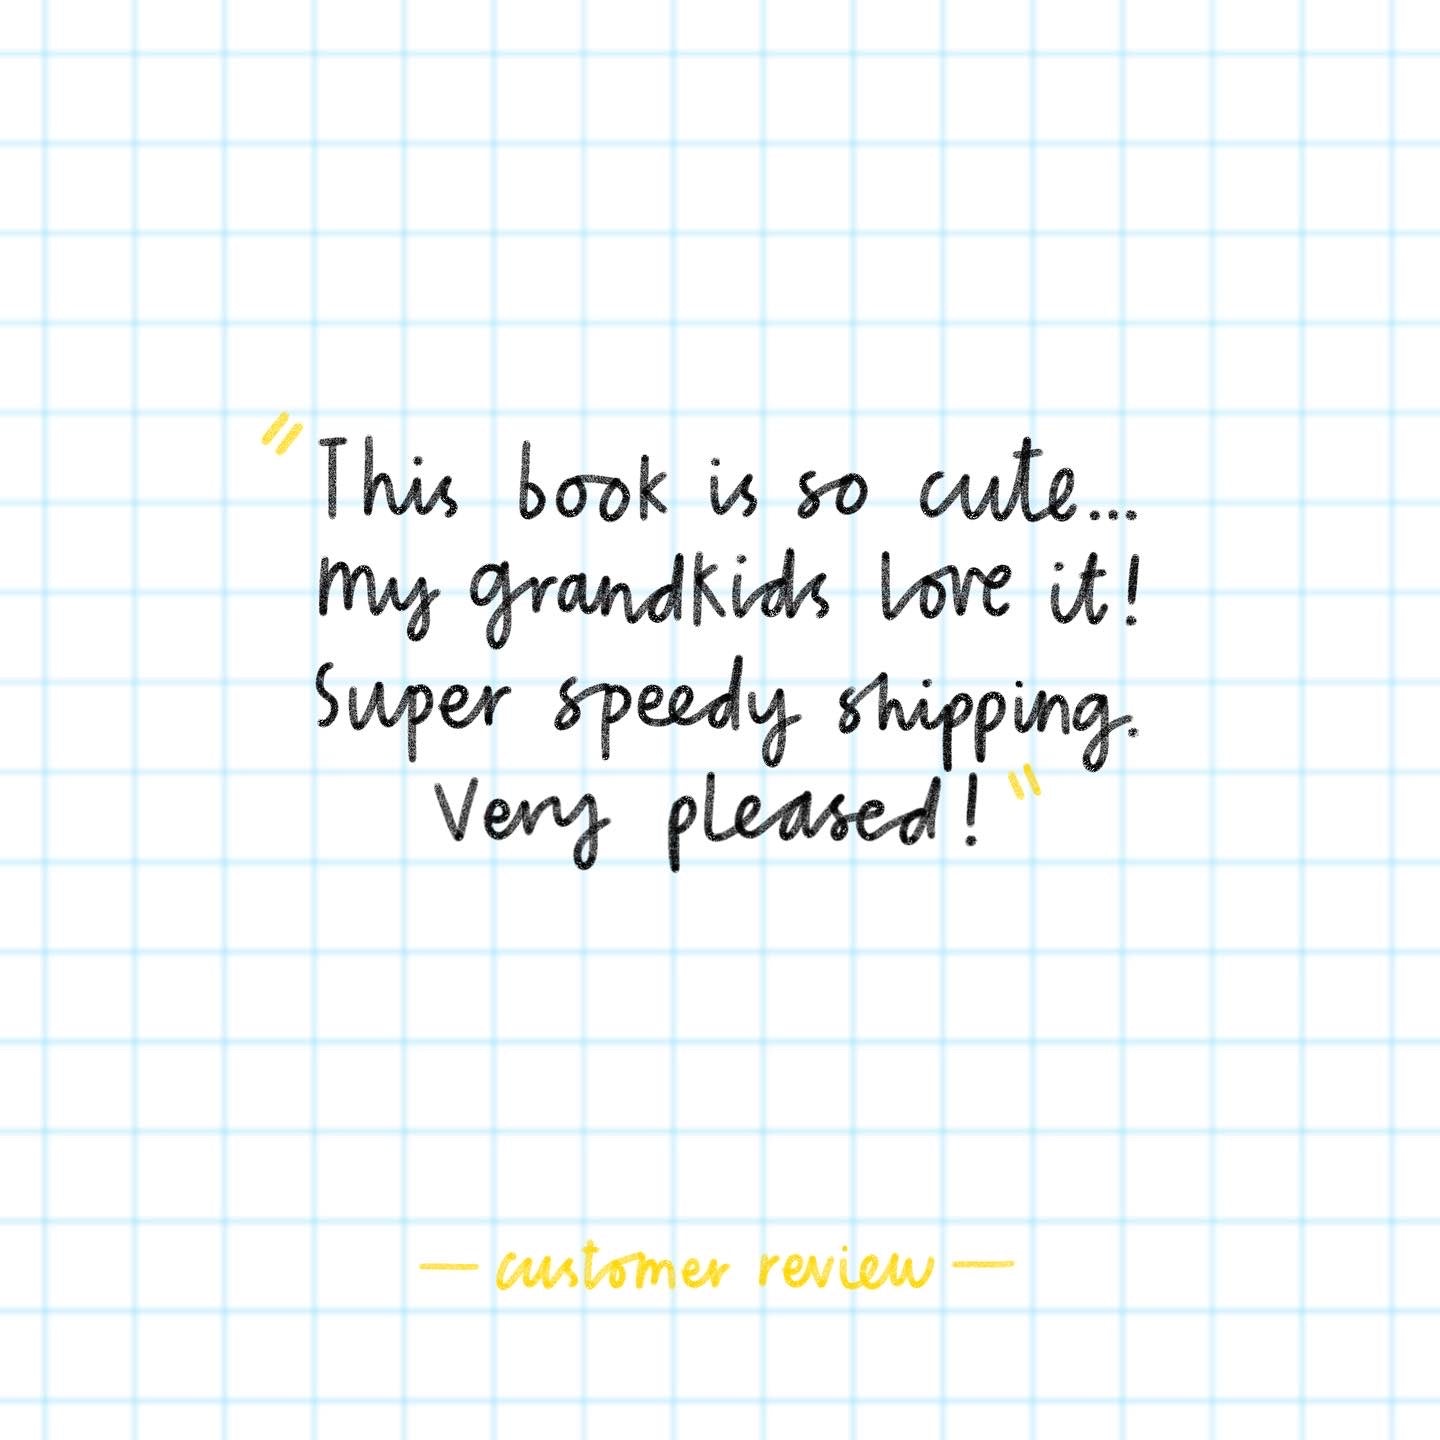 "This book is so cute...
my grandkids love it!
Super speedy shipping.
Very pleased!"
— customer review —